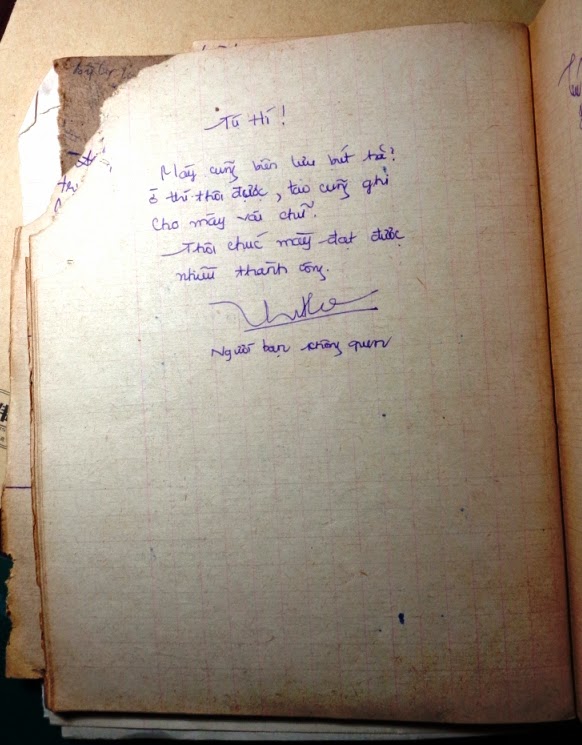 Tú Hí!
Mày cũng bên lưu bút hả?
ô thì thôi được, tao cũng ghi
cho mày vài chữ.
Thôi chúc mày đạt được
nhiều thành công.
Người bạn không quen